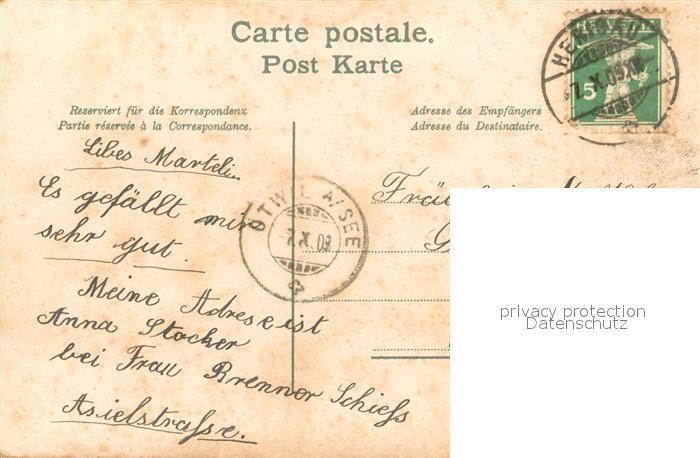 Carte postale.
Post Karte
HELVETIA
5
HERISAU
7.X.09.
Reserviert für die Korrespondenz
Partie réservée à la Correspondance.
Adresse des Empfängers
Adresse du Destinataire.
Libes Marteli.
Es gefällt mir
sehr gut.
OTWIL A/SEE
7.X.09
Meine Adresse ist
Anna Stocker
bei Frau Brennor Schiess
Asielstrasse.
privacy protection
Datenschutz